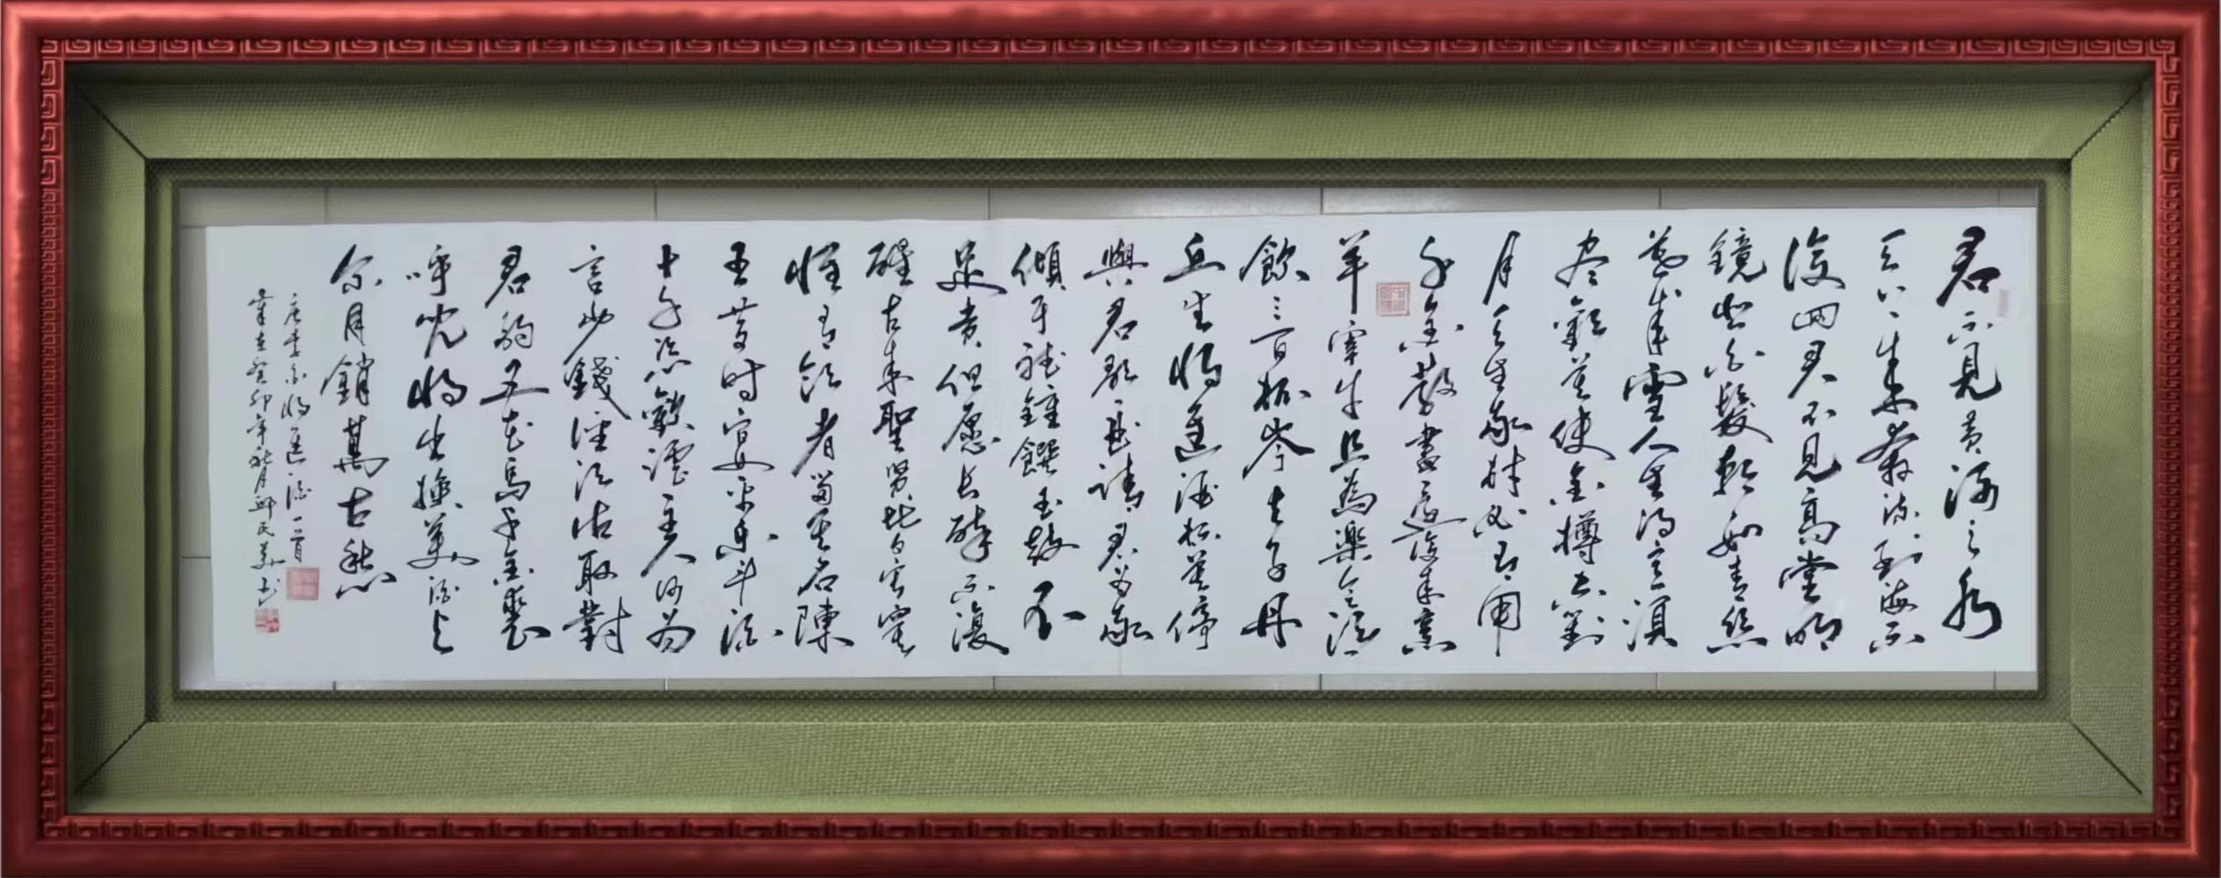 君不見黃河之水
天上來奔流到海不
復回君不見高堂明
鏡悲白髮朝如青丝
暮成雪人生得意須
尽歡莫使金樽空對
月天生我材必有用
千金散盡還復來烹
羊宰牛且為樂會須
飲三百杯岑夫子丹
丘生將進酒杯莫停
與君歌一曲請君为我
傾耳聽鍾饌玉鼓不
足貴但愿長醉不復
醒古來聖賢皆寂寞
惟有飲者留其名陳
王昔時宴平樂斗酒
十千恣歡謔主人何为
言少錢徑須沽取對
君酌五花馬千金裘
呼兒將出換美酒与
尔同銷萬古愁
唐李白將進酒一首
歲在癸卯年秋月民书